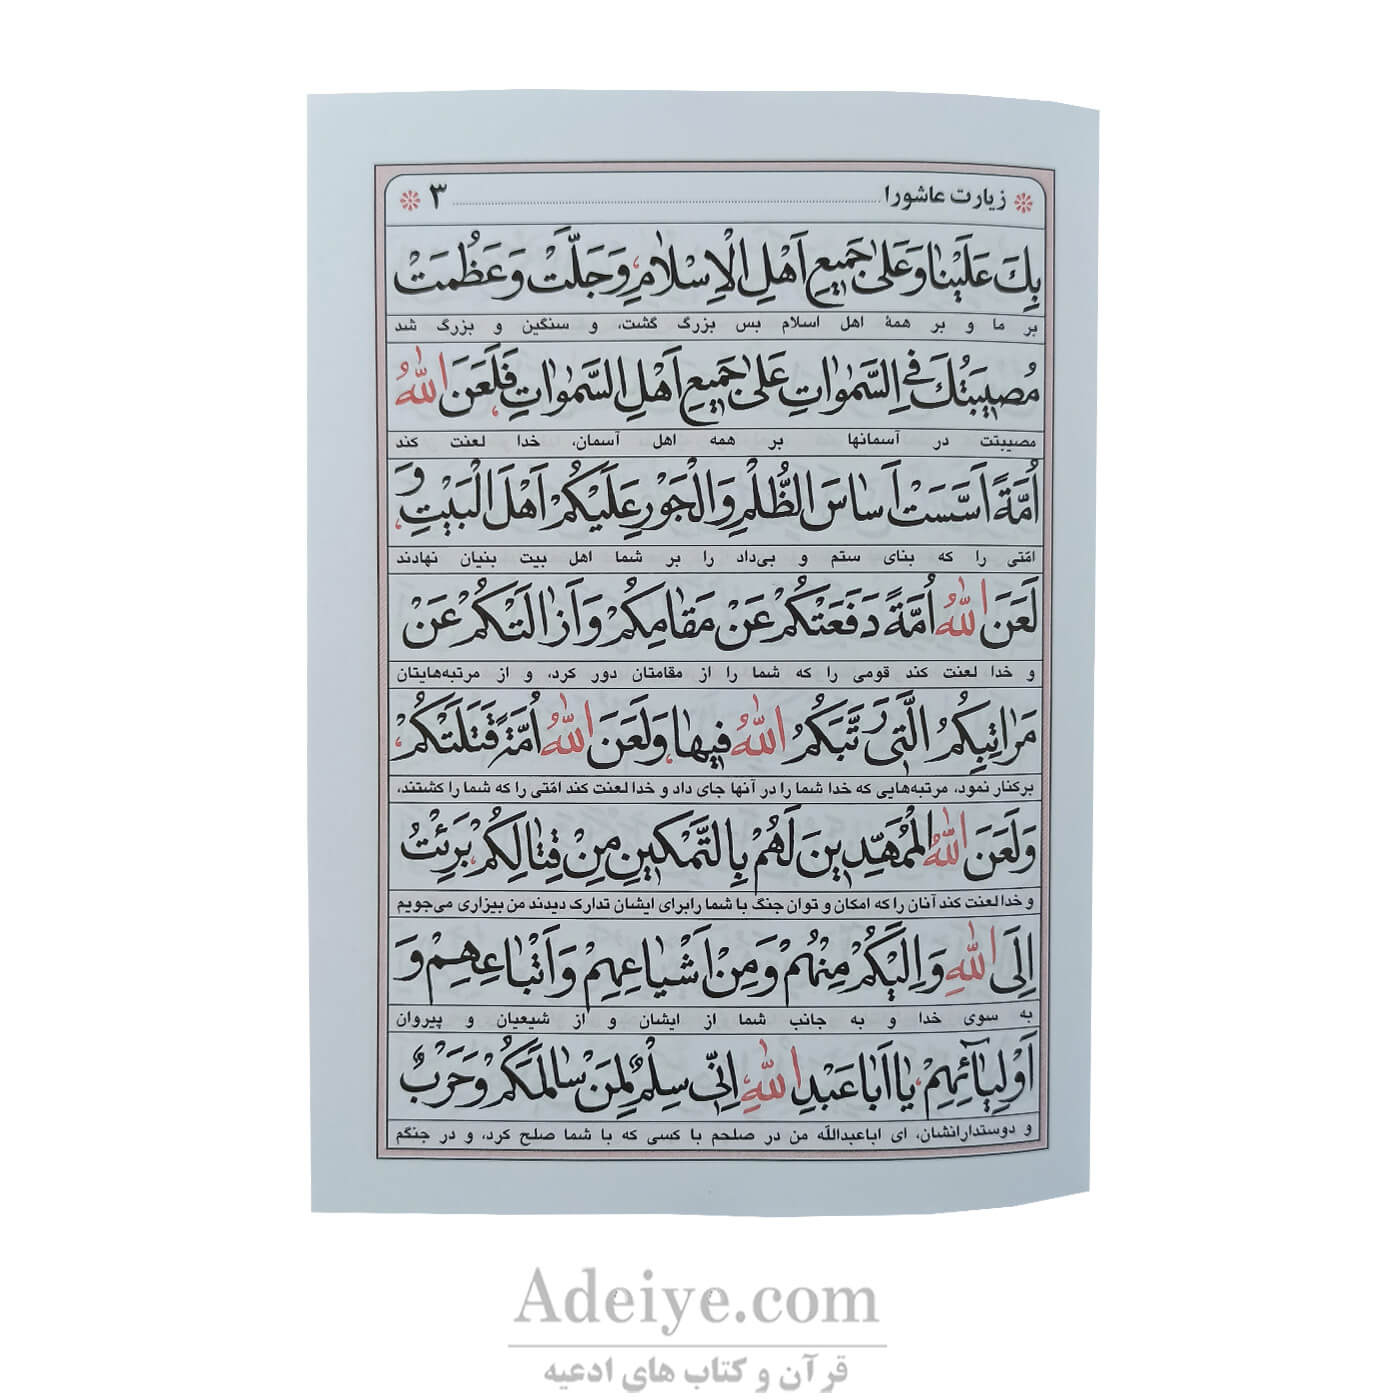 زیارت عاشورا ۳
بِكَ عَلَيْنا وَ عَلىٰ جَميعِ اَهْلِ الْاِسْلامِ، وَ جَلَّتْ وَ عَظُمَتْ
بر ما و بر همهٔ اهل اسلام بس بزرگ گشت، و سنگین و بزرگ شد
مُصيبَتُكَ فِى السَّمٰواتِ عَلىٰ جَميعِ اَهْلِ السَّمٰواتِ، فَلَعَنَ اللّٰهُ
مصیبتت در آسمانها بر همه اهل آسمان، خدا لعنت کند
اُمَّةً اَسَّسَتْ اَساسَ الظُّلْمِ وَ الْجَوْرِ عَلَيْكُمْ اَهْلَ الْبَيْتِ، وَ
امّتی را که بنای ستم و بی‌داد را بر شما اهل بیت بنیان نهادند
لَعَنَ اللّٰهُ اُمَّةً دَفَعَتْكُمْ عَنْ مَقامِكُمْ وَ اَزالَتْكُمْ عَنْ
و خدا لعنت کند قومی را که شما را از مقامتان دور کرد، و از مرتبه‌هایتان
مَراتِبِكُمُ الَّتى رَتَّبَكُمُ اللّٰهُ فيها، وَ لَعَنَ اللّٰهُ اُمَّةً قَتَلَتْكُمْ،
برکنار نمود، مرتبه‌هایی که خدا شما را در آنها جای داد و خدا لعنت کند امّتی را که شما را کشتند،
وَ لَعَنَ اللّٰهُ الْمُمَهِّدينَ لَهُمْ بِالتَّمْكينِ مِنْ قِتالِكُمْ، بَرِئْتُ
و خدا لعنت کند آنان را که امکان و توان جنگ با شما را برای ایشان تدارک دیدند من بیزاری می‌جویم
اِلَى اللّٰهِ وَ اِلَيْكُمْ مِنْهُمْ وَ مِنْ اَشْياعِهِمْ وَ اَتْباعِهِمْ وَ
به سوی خدا و به جانب شما از ایشان و از شیعیان و پیروان
اَوْلِيآئِهِمْ، يا اَبا عَبْدِ اللّٰهِ، اِنّى سِلْمٌ لِمَنْ سالَمَكُمْ وَ حَرْبٌ
و دوستدارانشان، ای اباعبداللّه من در صلحم با کسی که با شما صلح کرد، و در جنگم
Adeiye.com
قرآن و کتاب های ادعیه